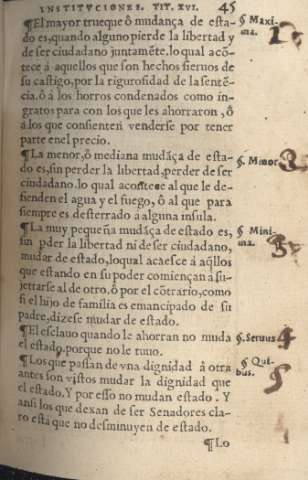 INSTITVCIONES. TIT. XVI. 45
¶El mayor trueque ô mudança de esta-
do es, quando alguno pierde la libertad y
de ser ciudadano juntamẽte. lo qual acõ-
tece á aquellos que son hechos sieruos de
su castigo, por la rigurosidad de la sentẽ-
cia. ô á los horros condenados como in-
gratos para con los que les ahorraron, ô
a los que consienten venderse por tener
parte en el precio.
§. Maxi-
ma.
1
¶La menor, ô mediana mudãça de esta-
do es, sin perder la libertad, perder de ser
ciudadano. lo qual acontece al que le de-
fienden el agua y el fuego, ô al que para
siempre es desterrado á alguna insula.
§. Menor
2
¶La muy pequeña mudãça de estado es,
sin pder la libertad ni de ser ciudadano,
mudar de estado, lo qual acaesce á aq̃llos
que estando en su poder comiençan á su-
jettarse al de otro. ô por el cõtrario, como
si el hijo de familia es emancipado de su
padre, dizese mudar de estado.
§. Mini-
ma.
3
¶El esclauo quando le ahorran no muda
el estado, porque no le tuuo.
§. Seruus
4
¶Los que passan de vna dignidad á otra
antes son vistos mudar la dignidad que
el estado. Y por esso no mudan estado. Y
ansi los que dexan de ser Senadores cla-
ro está que no desminuyen de estado.
§. Qui-
bus.
5
¶Lo